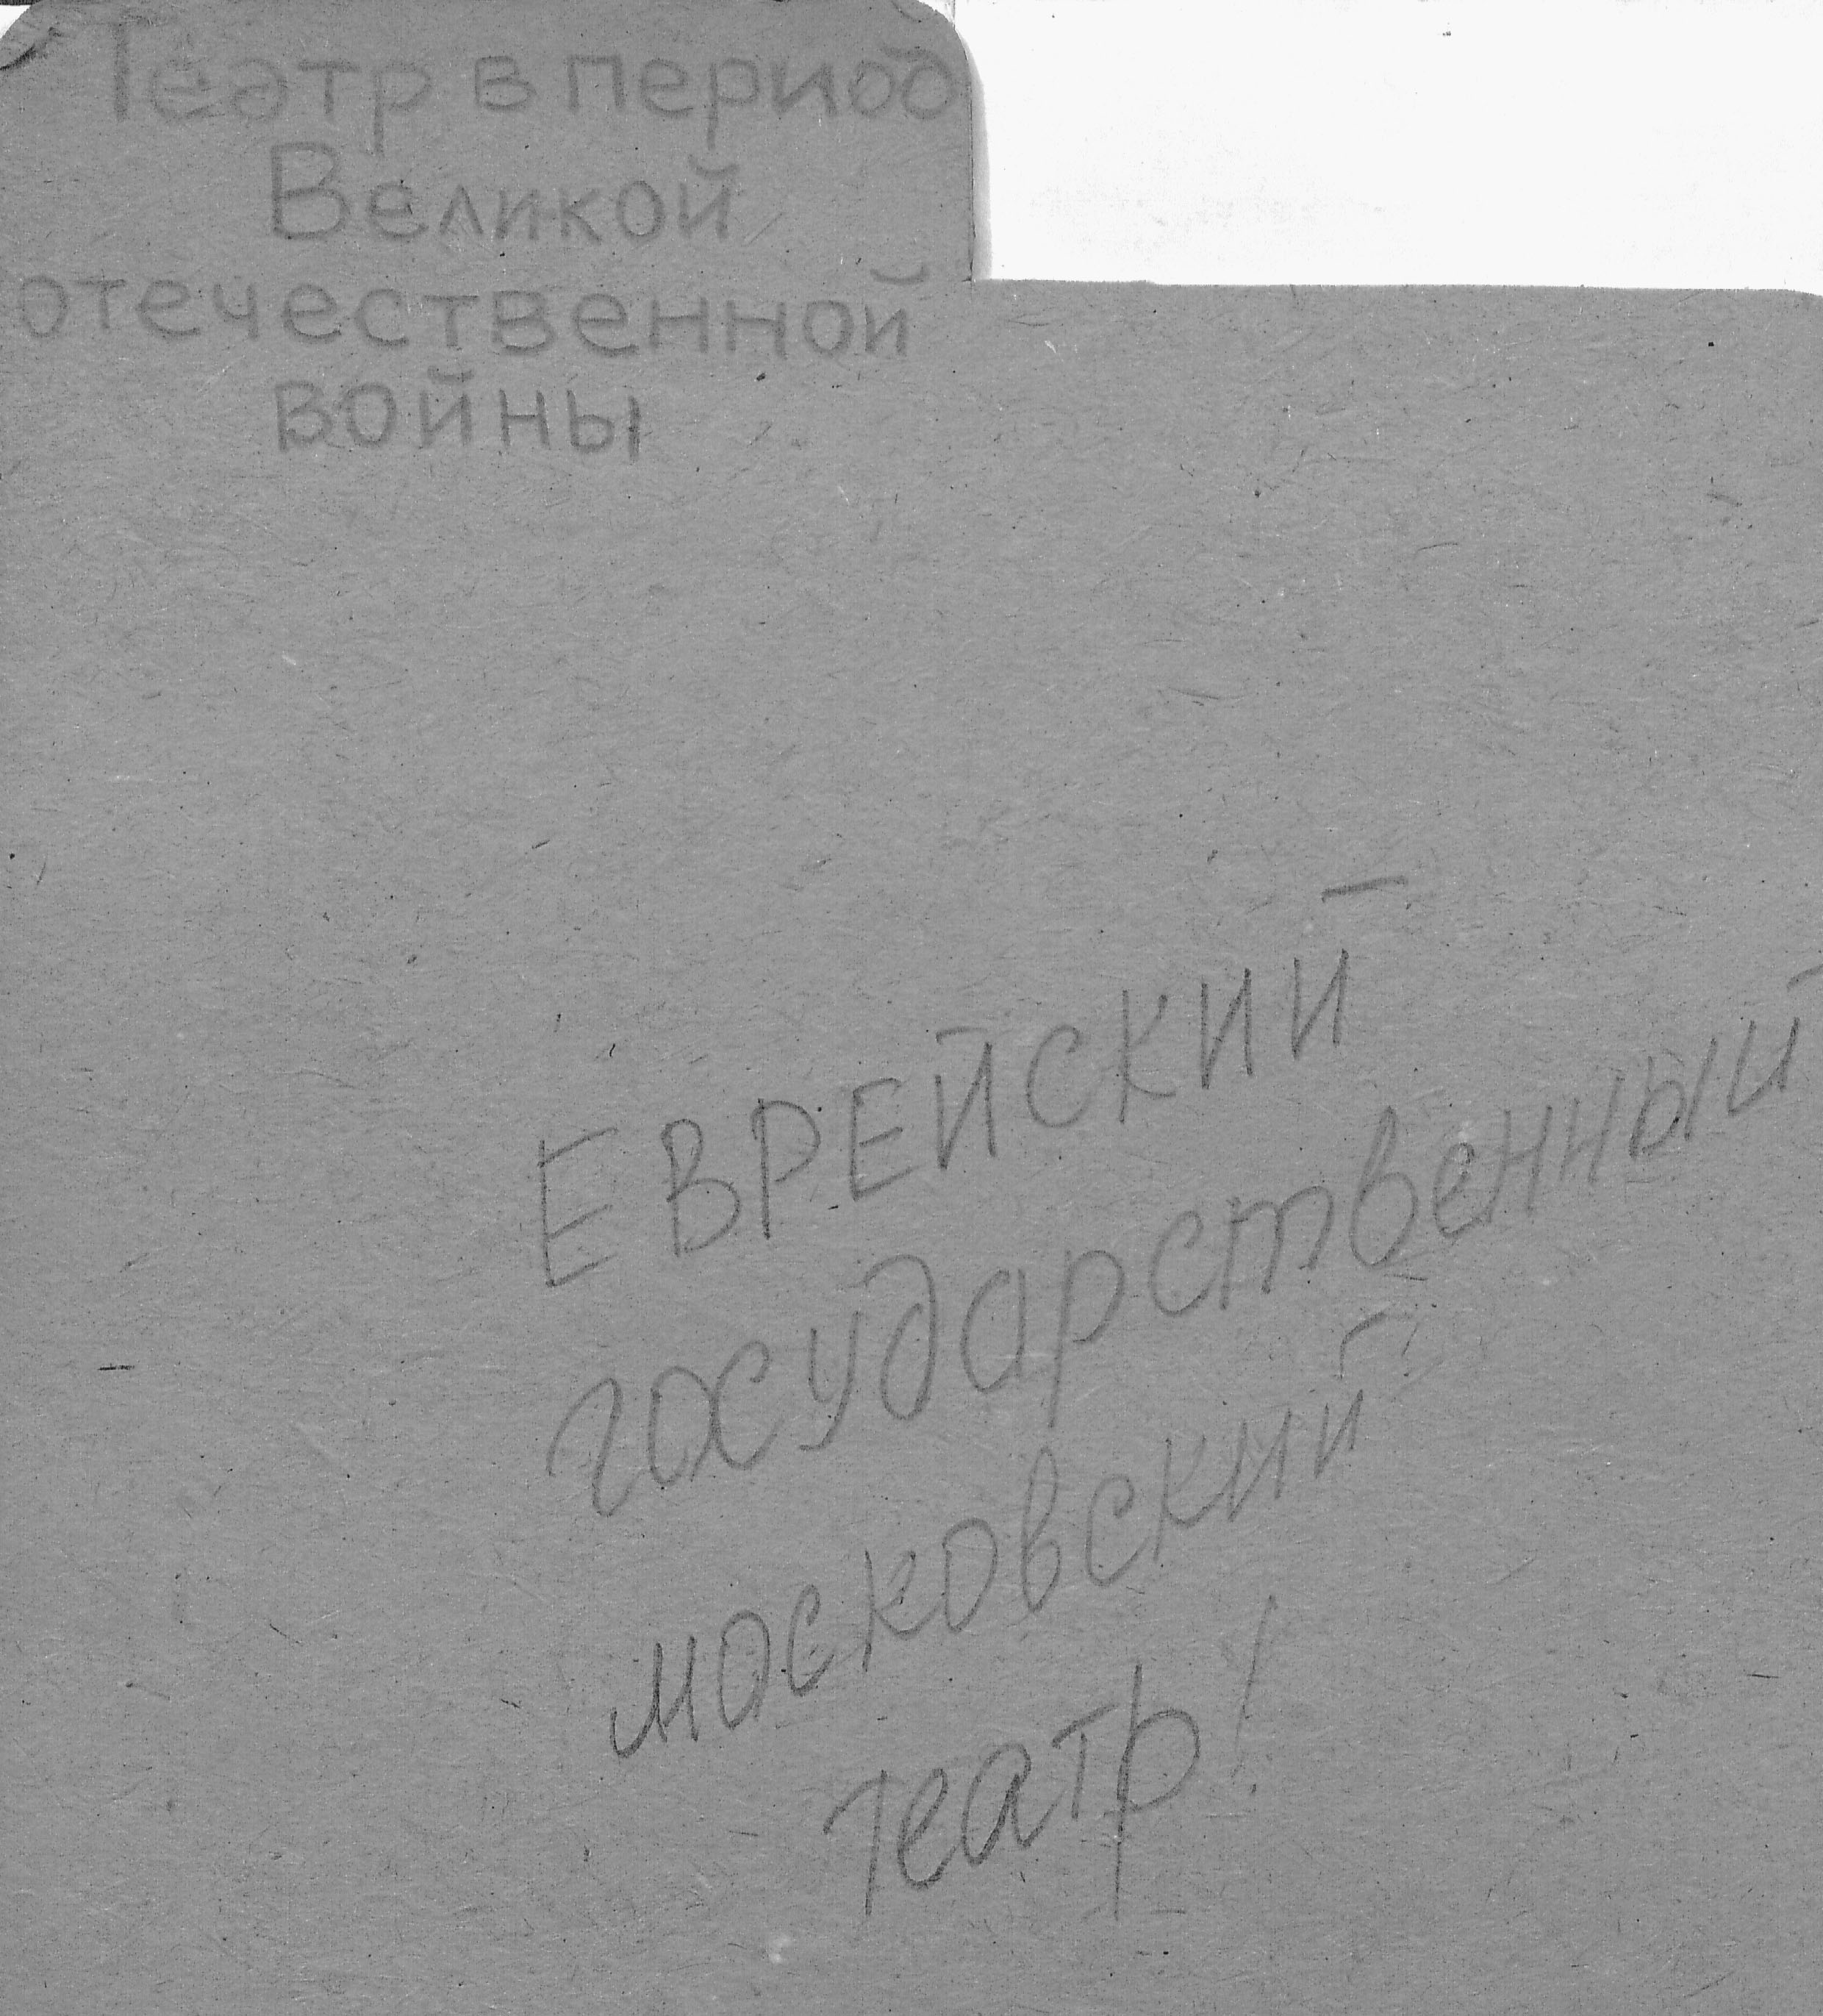 Театр в период
Великой
отечественной
войны
ЕВРЕЙСКИЙ
государственный
московский
театр!